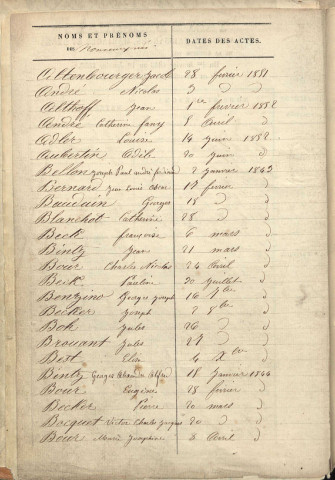 NOMS ET PRÉNOMS
DES Nouveaux nés
DATES DES ACTES.
Altenbourger Jacob 28 fevrier 1851
André Nicolas 3 d
Althoff Jean 1er fevrier 1852
André Catherine fanny 8 Avril d
Adler Louise 14 juin 1852
Aubertin Adèle 20 juin d
Bellon Joseph Paul andré 2 janvier 1843
Bernard Jean Louis 17 fevrier
Baudain Georges 18 d d
Blanchot Catherine 28 d d
Beck françoise 6 mars d
Bintz Jean 21 mars d
Bour Charles Nicolas 24 Avril d
Beck Pauline 20 juillet d
Benzino Georges Joseph 16 7bre d
Becker Joseph 2 8bre d
Boh Jules 26 d d
Brouant Jules 27 d d
Bist Elise 4 Xbre d
Bentz Georges Alfred 18 janvier 1844
Bour Eugène 28 fevrier d
Becker Pierre 20 mars d
Bocquet Victor Charles Jacques 20 d d
Bour Marie Josephine 3 Avril d